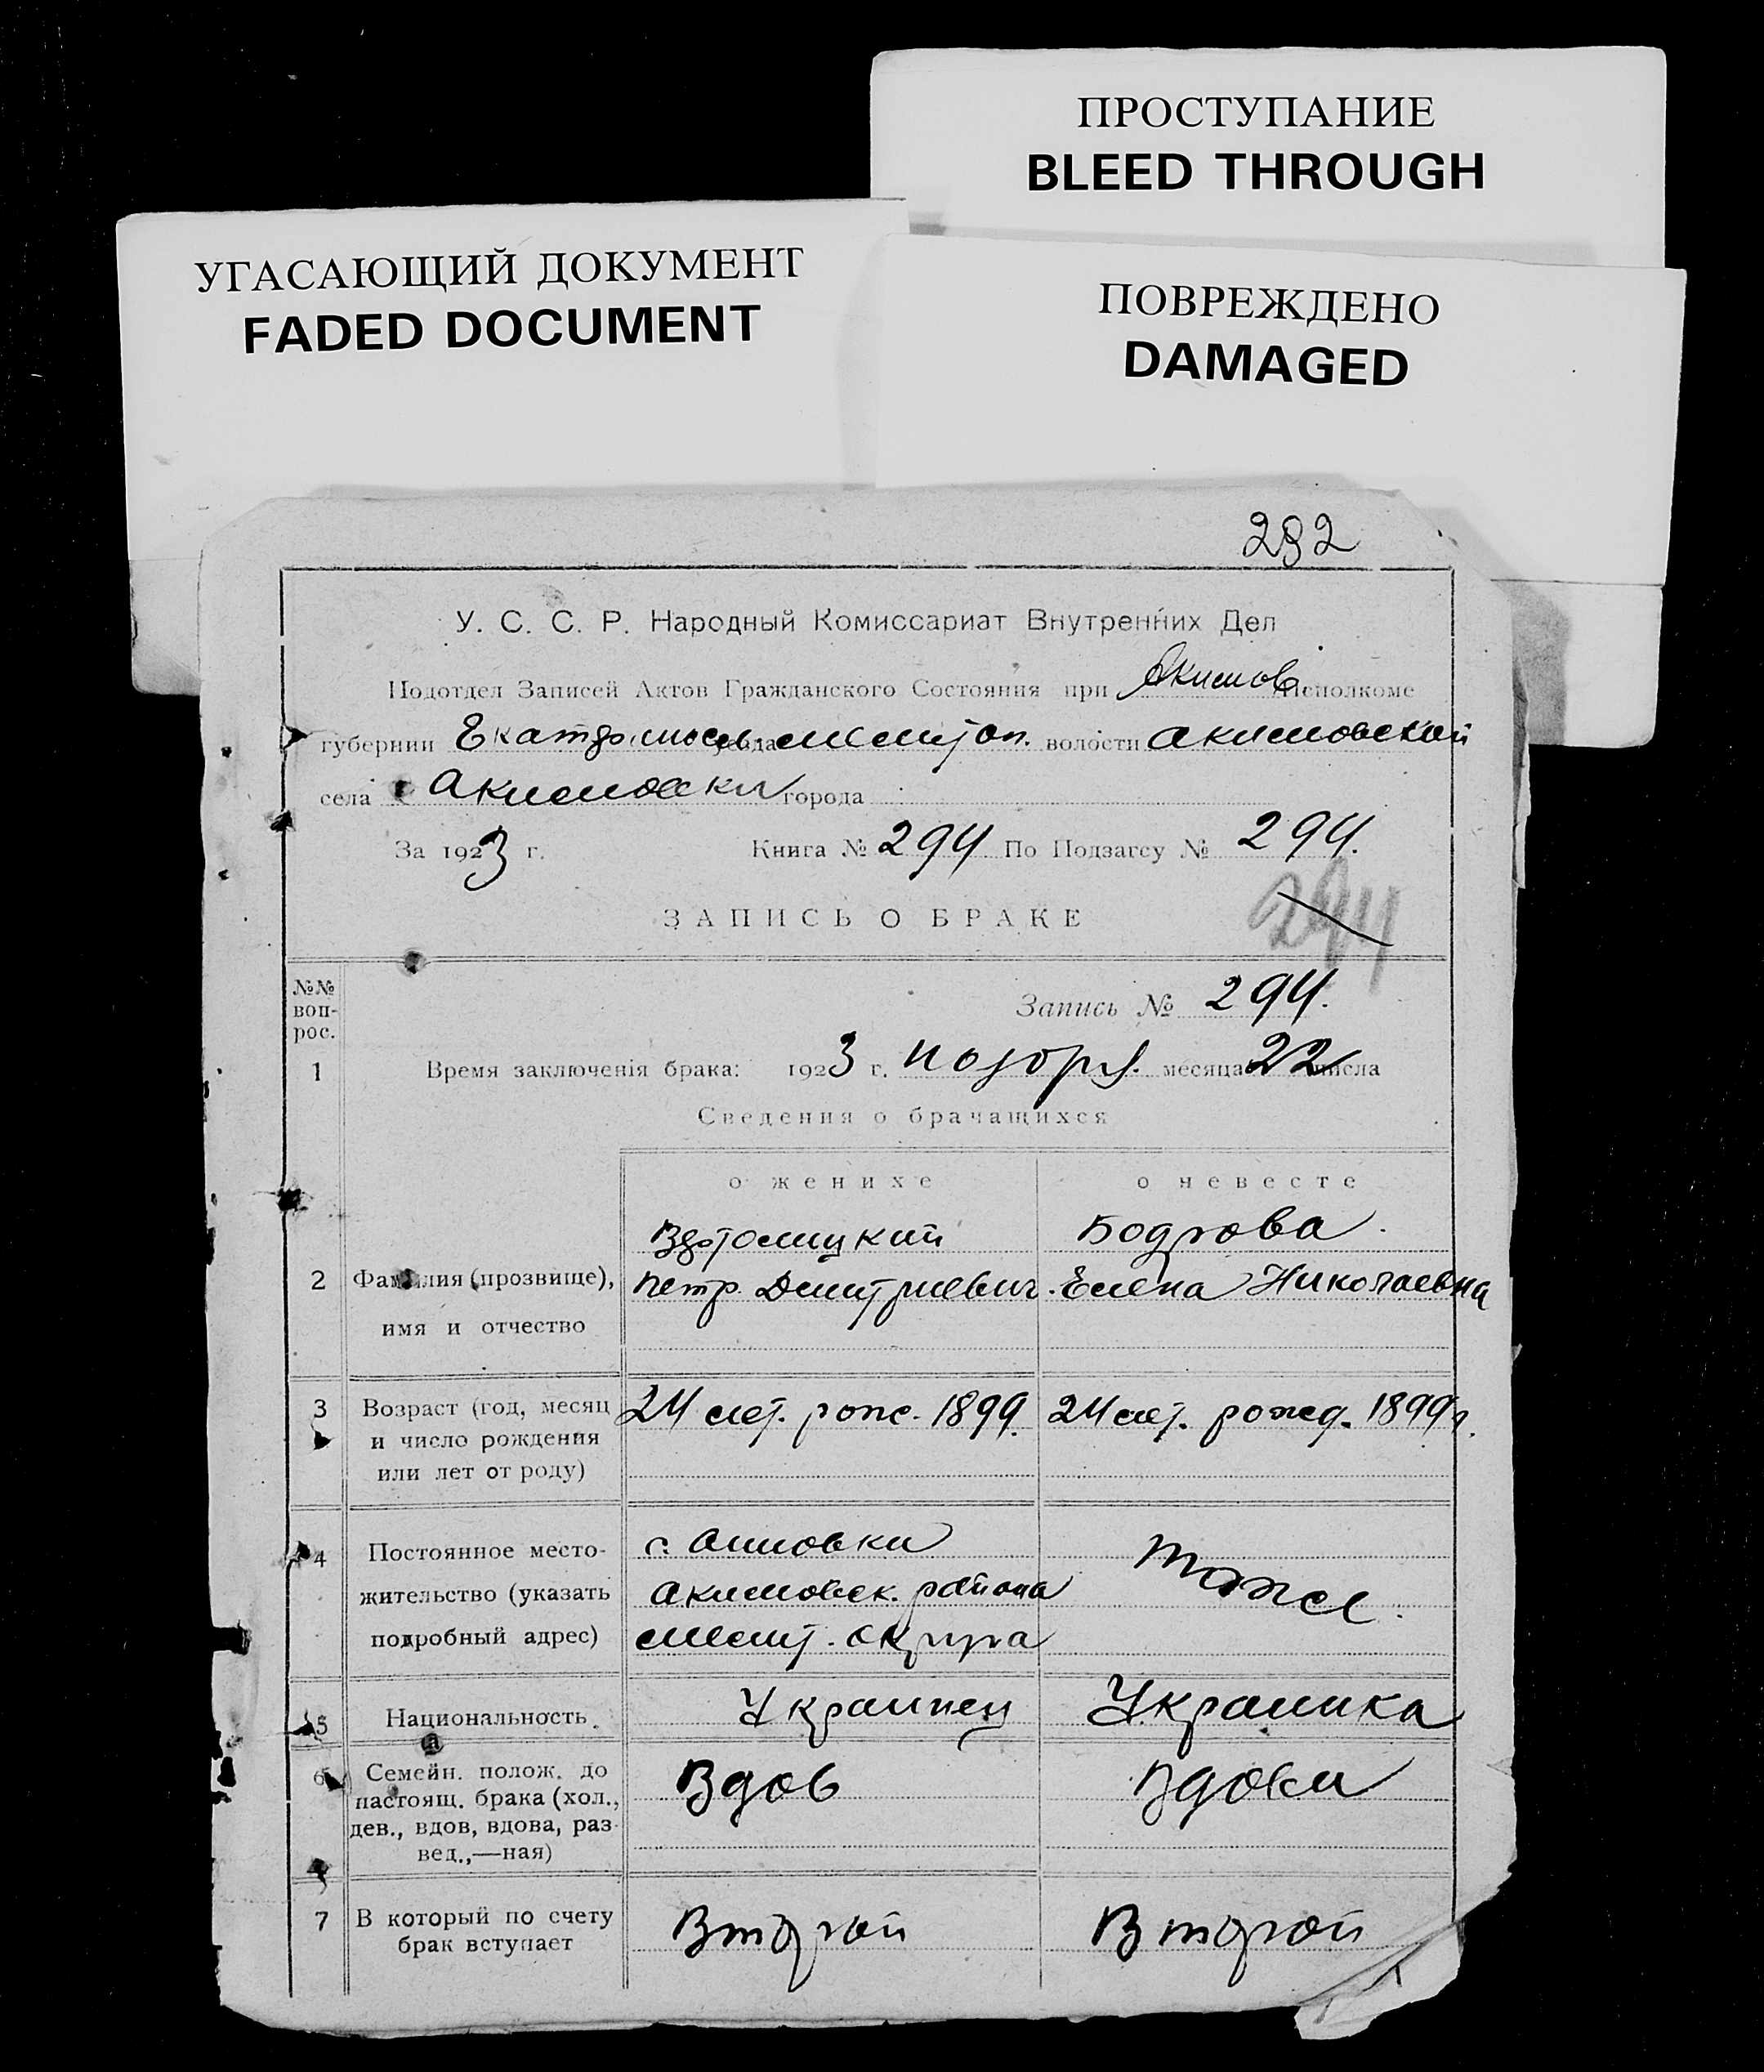 ПРОСТУПАНИЕ
BLEED THROUGH
УГАСАЮЩИЙ ДОКУМЕНТ
FADED DOCUMENT
ПОВРЕЖДЕНО
DAMAGED
292
У. С. С. Р. Народный Комиссариат Внутренних Дел
Подотдел Записей Актов Гражданского Состояния при Акимов Исполкоме
губернии уезда Мелитоп. волости Акимовской
села Акимовки города
За 1923 г. Книга № 294 По Подзагсу № 294.
294
ЗАПИСЬ О БРАКЕ
№№ воп-рос.
Запись № 294.
1 Время заключенія брака: 1923 г. ноября месяца 22 числа
Сведения о брачащихся
о женихе о невесте
Бодрова
2 Фамилия (прозвище), Петр Дмитриевич Елена Николаевна
имя и отчество
3 Возраст (год, месяц 24 лет. рож. 1899. 24 лет. рожд. 1899 г.
и число рождения
или лет от роду)
с.
4 Постоянное место-
жительство (указать Акимовск. района тоже
подробный адрес) Мелит. округа
5 Национальность Украинец Украинка
6 Семейн. полож. до Вдов Вдова
настоящ. брака (хол.,
дев., вдов, вдова, раз-
вед.,—ная)
7 В который по счету Второй Второй
брак вступает